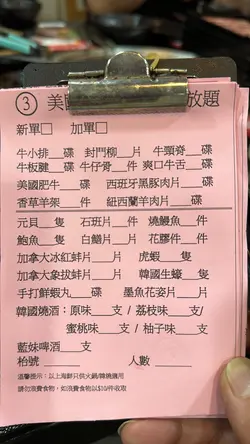 ③ 美 放題
新單□ 加單□
牛小排___碟 封門柳___片 牛頸脊___碟
牛板腱___碟 牛仔骨___件 爽口牛舌___碟
美國肥牛___碟 西班牙黑豚肉片___碟
香草羊架___件 紐西蘭羊肉片___碟
元貝___隻 石斑片___件 燒鰻魚___件
鮑魚___隻 白鱔片___片 花膠件___件
加拿大冰紅蚌片___片 虎蝦___隻
加拿大象拔蚌片___片 韓國生蠔___隻
手打鮮蝦丸___碟 墨魚花姿片___片
韓國燒酒：原味___支 / 荔枝味___支/
蜜桃味___支 / 柚子味___支
藍妹啤酒___支
枱號______ 人數______
溫馨提示：以上海鮮只供火鍋/韓燒適用
請勿浪費食物，如浪費食物以$10/件收取